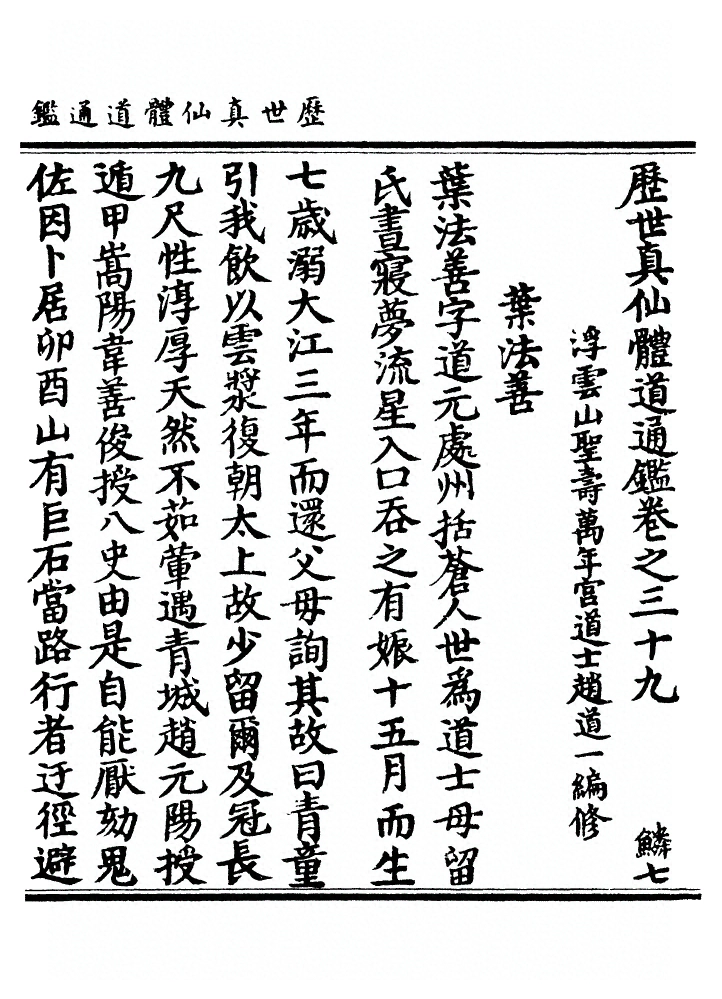 歷世真仙體道通鑑
歷世真仙體道通鑑卷之三十九 鱗七
浮雲山聖壽萬年宮道士趙道一編修
葉法善
葉法善字道元處州括蒼人世為道士母留
氏晝寢夢流星入口吞之有娠十五月而生
七歲溺大江三年而還父母詢其故曰青童
引我飲以雲漿復朝太上故少留爾及冠長
九尺性淳厚天然不茹葷遇青城趙元陽授
遁甲嵩陽韋善俊授八史由是自能厭劾鬼
佐因卜居卯酉山有巨石當路行者迂徑避